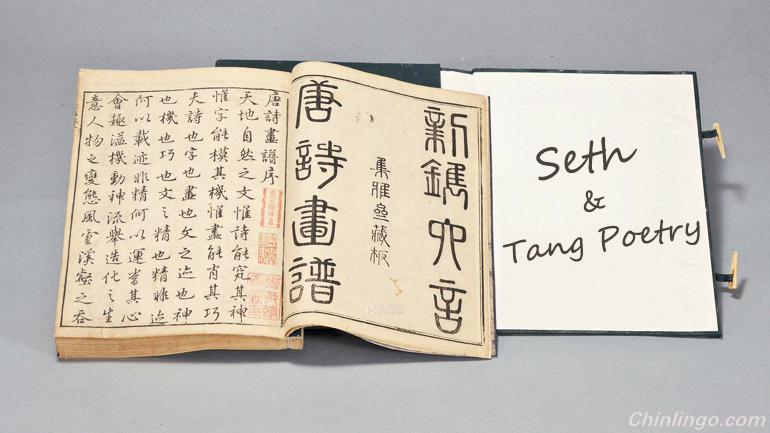 新鐫六言
集雅齋藏板
唐詩畫譜
唐詩畫譜序
天地自然之文惟詩能究其神
惟字能模其機惟畫能肖其巧
夫詩也字也畫也文之迹也神
也機也巧也文之精也精非迹
何以載迹非精何以運當其心
會趣溢機動神流舉造化之生
意人物之變態風雲溪壑之吞
Seth
&
Tang Poetry
Chinlingo.com